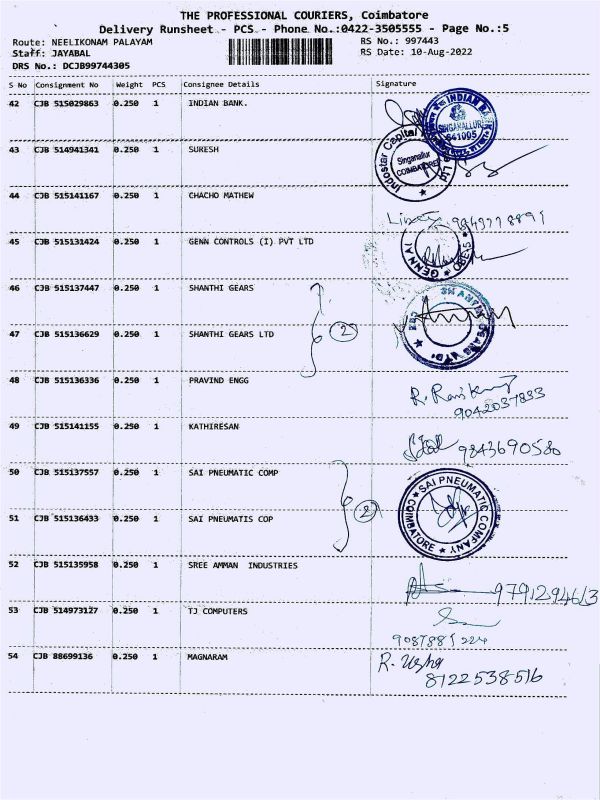 THE PROFESSIONAL COURIERS, Coimbatore
Delivery Runsheet - PCS - Phone No.:0422-3505555 - Page No.:5
Route: NEELIKONAM PALAYAM RS No.: 997443
Staff: JAYABAL RS Date: 10-Aug-2022
DRS No.: DCJB99744305
S No Consignment No Weight PCS Consignee Details Signature
42 CJB 515029863 0.250 1 INDIAN BANK.
INDIAN BANK
SINGANALLUR
641005
43 CJB 514941341 0.250 1 SURESH
Indostar Capital
Singanallur
COIMBATORE
44 CJB 515141167 0.250 1 CHACHO MATHEW
45 CJB 515131424 0.250 1 GENN CONTROLS (I) PVT LTD
GENN
CBE-5
46 CJB 515137447 0.250 1 SHANTHI GEARS
47 CJB 515136629 0.250 1 SHANTHI GEARS LTD
2
48 CJB 515136336 0.250 1 PRAVIND ENGG
9042037833
49 CJB 515141155 0.250 1 KATHIRESAN
9843690580
50 CJB 515137557 0.250 1 SAI PNEUMATIC COMP
51 CJB 515136433 0.250 1 SAI PNEUMATIS COP
2
SAI PNEUMATIC COMPANY
COIMBATORE
52 CJB 515135958 0.250 1 SREE AMMAN INDUSTRIES
9791294613
53 CJB 514973127 0.250 1 TJ COMPUTERS
54 CJB 88699136 0.250 1 MAGNARAM
R. Usha
8122538516